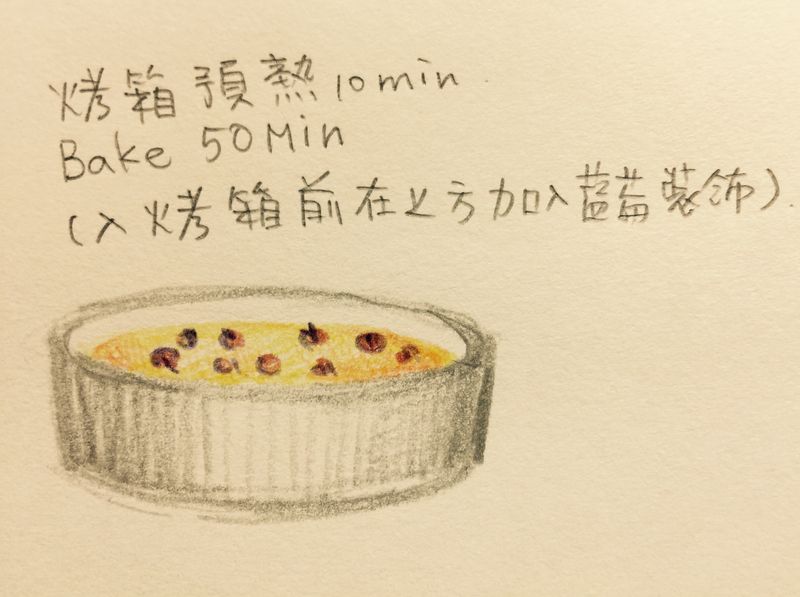 烤箱預熱10min
Bake 50Min
(入烤箱前在上方加入藍莓裝飾)